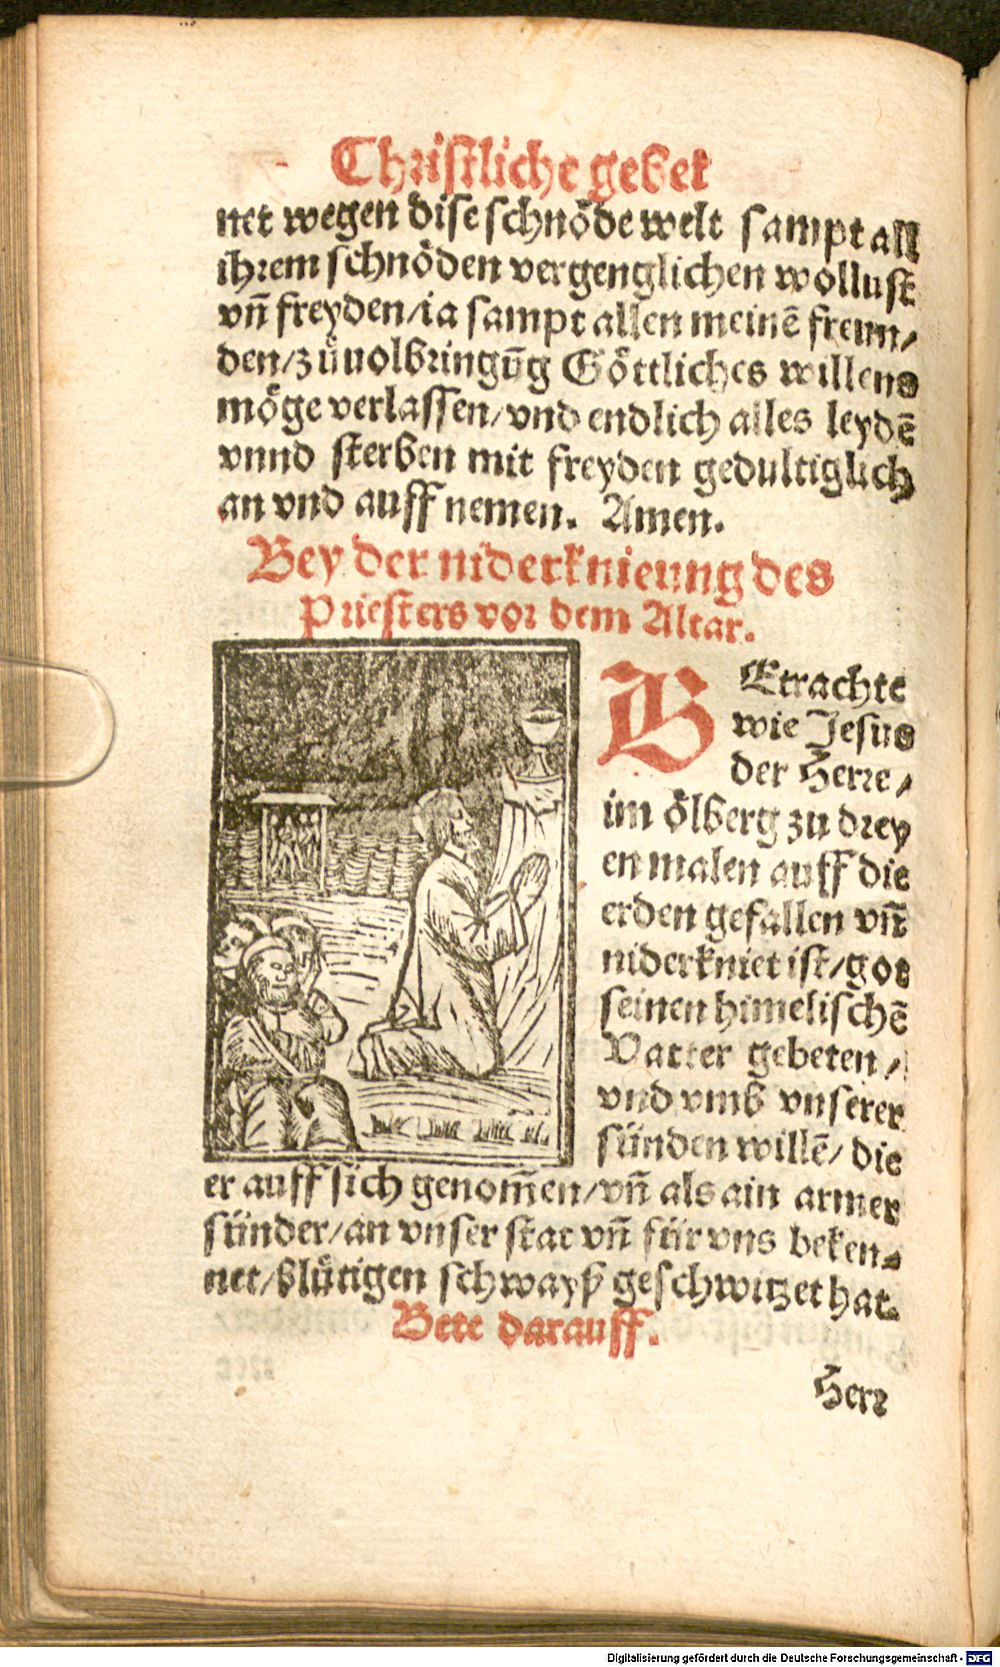 Christliche gebet
net wegen dise schnöde welt sampt all
ihrem schnöden vergenglichen wollust
vñ freyden/ia sampt allen meinẽ freun/
den/zů uolbringũg Göttliches willens
möge verlassen/vnd endlich alles leydẽ
vnnd sterben mit freyden gedultiglich
an vnd auff nemen. Amen.
Bey der niderknieung des
Priesters vor dem Altar.
BEtrachte
wie Jesus
der Herre/
im ölberg zu drey
en malen auff die
erden gefallen vñ
niderkniet ist/got
seinen himelischẽ
Vatter gebeten/
vnd vmb vnserer
sünden willẽ/die
er auff sich genom̃en/vñ als ain armer
sünder/an vnser stat vñ für vns beken-
net/blůtigen schwayß geschwitzet hat.
Bete darauff.
Herr
Digitalisierung gefördert durch die Deutsche Forschungsgemeinschaft - DFG